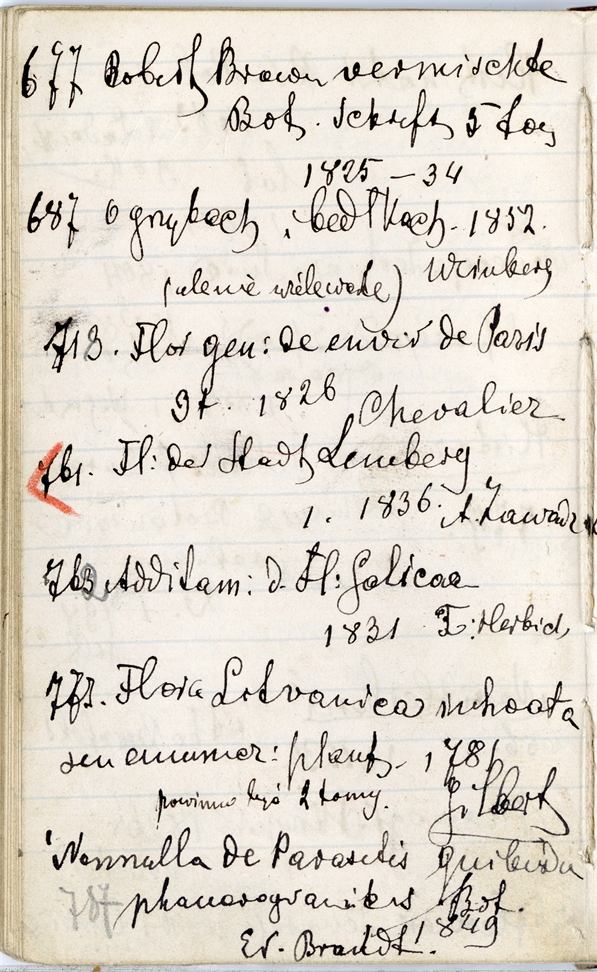 677 Robert Brown vermischte
Bot. Schrift 5 tom
1825 – 34
687 O grzybach, bedłkach. 1852.
wielewicke) Weinberg
713. Flor gen: de envir de Paris
3 t. 1826 Chevalier
761. Fl: der Stadt Lemberg
1. 1836. A. Zawadz
763 Additam: d. Fl: Galicae
1831 F: Herbich
Flora Lituanica inhoata
seu enumer: plant. 1781
powinno być 2 tomy. Gilbert
Nonnulla de Parasitis quibusdu
787 phanerogamicis Bot.
Ed. Brandt. 1849